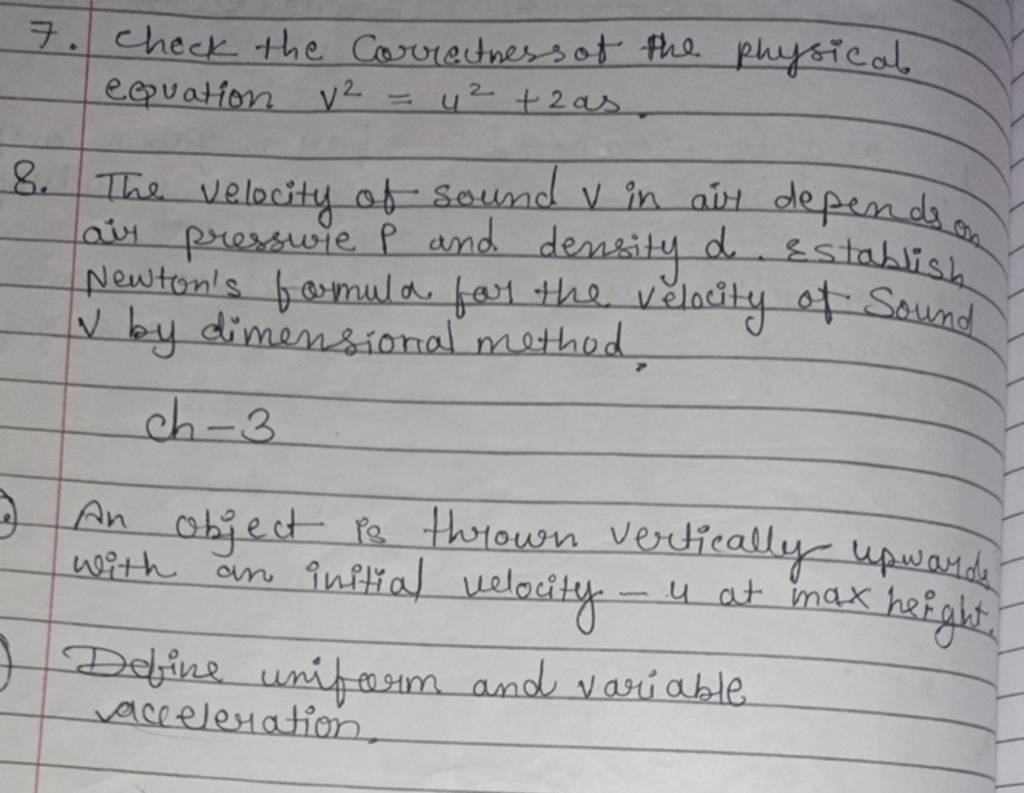 7. Check the Correctness of the physical
eqpuation v² = u² + 2as.
8. The velocity of sound v in air depends on
air pressure P and density d. Establish
Newton's formula for the velocity of Sound
v by dimensional method.
ch-3
An object is thrown vertically upwards
with an initial velocity - u at max height.
Define uniform and variable
acceleration.